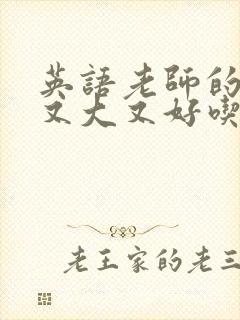 英語老師的
又大又好喫
老王家的老三